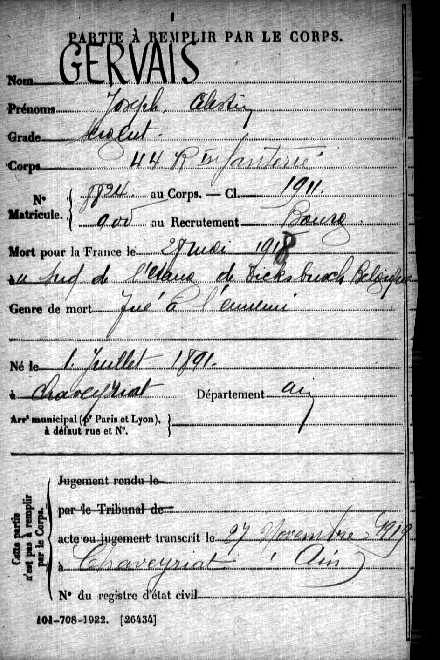 PARTIE À REMPLIR PAR LE CORPS.
Nom GERVAIS
Prénoms Joseph, Célestin
Grade Sergent
Corps 44 R Infanterie
N° Matricule. { 8824 au Corps. — Cl. 1911.
900 au Recrutement Bourg
Mort pour la France le 28 mai 1918
au Sud de l'Etang de Dickebusch Belgique
Genre de mort Tué à l'ennemi
Né le 1. Juillet 1891.
à Chaveyriat Département Ain
Arrt municipal (pr Paris et Lyon), à défaut rue et N°. }
Cette partie n'est pas à remplir par le Corps. {
Jugement rendu le
par le Tribunal de
acte ou jugement transcrit le 27 Novembre 1919
à Chaveyriat Ain
N° du registre d'état civil
101-708-1922. [26434]